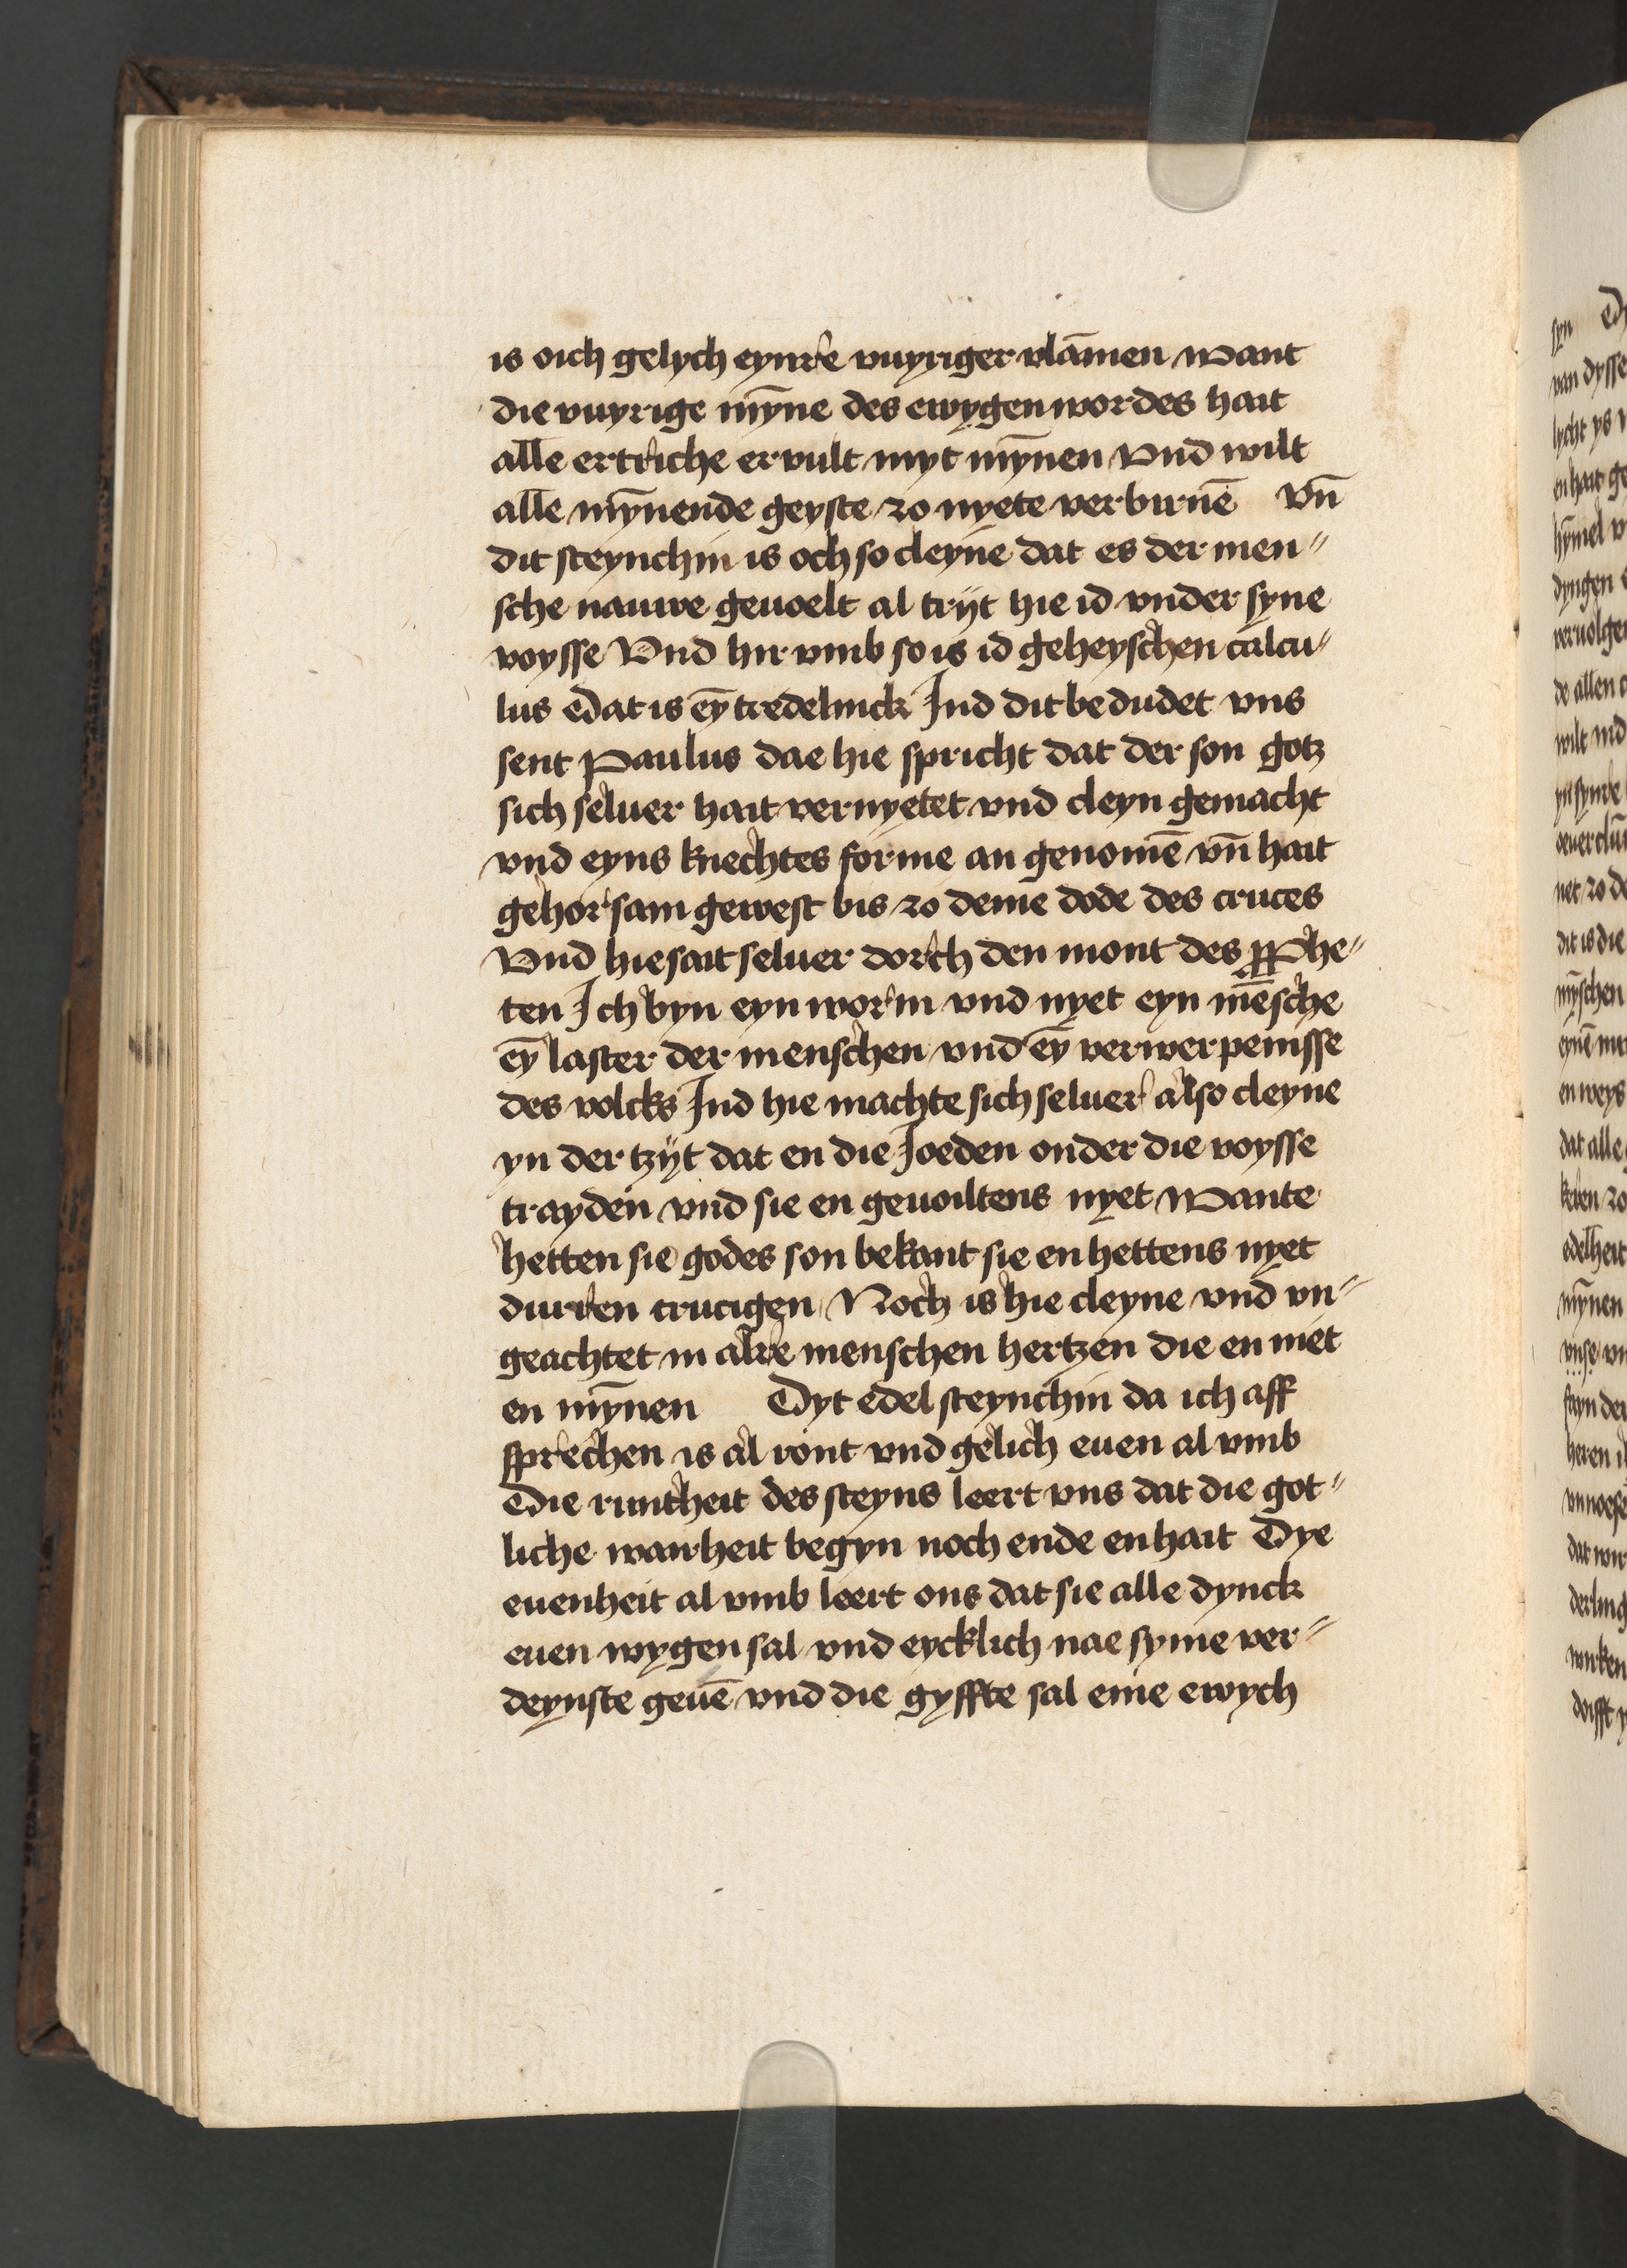 is oich gelych eynre vuyriger vlāmen want
die vuyrige mȳne des ewygen wordes hait
alle ertriche ervult myt mȳnen Vnd wilt
alle mȳnende geyste zo nyete verburnē vn̄
dit steynchin is och so cleyne dat es der men〃
sche nauwe gevoelt al trijt hie id vnder syne
voysse Vnd hir vmb so is id geheyschen calcu〃
lus Dat is eȳ tredelinck Ind dit bedudet vns
sent Paulus dae hie spricht dat der son gotz
sich seluer hait vernyetet vnd cleyn gemacht
vnd eyns knechtes forme an genomē vn̄ hait
gehorsam gewest bis zo deme dode des cruces
Vnd hie sait seluer dorch den mont des pphe〃
ten Ich byn eyn worm vnd nyet eyn mēsche
eȳ laster der menschen vnd eȳ verwerpenisse
des volcks Ind hie machte sich seluer also cleyne
yn der tzijt dat en die Joeden onder die voysse
trayden vnd sie en gevoiltens nyet wante
hetten sie godes son bekant sie en hettens nyet
durren crucigen Noch is hie cleyne vnd vn〃
geachtet in alre menschen hertzen die en niet
en mȳnen Dyt edel steynchin da ich aff
sprechen is al ront vnd gelich euen al vmb
Die runtheit des steyns leert vns dat die got〃
liche wairheit begyn noch ende en hait Dye
euenheit al vmb leert ons dat sie alle dynck
euen wygen sal vnd eycklich nae syme ver〃
deynste geuē vnd die gyffte sal eme ewych